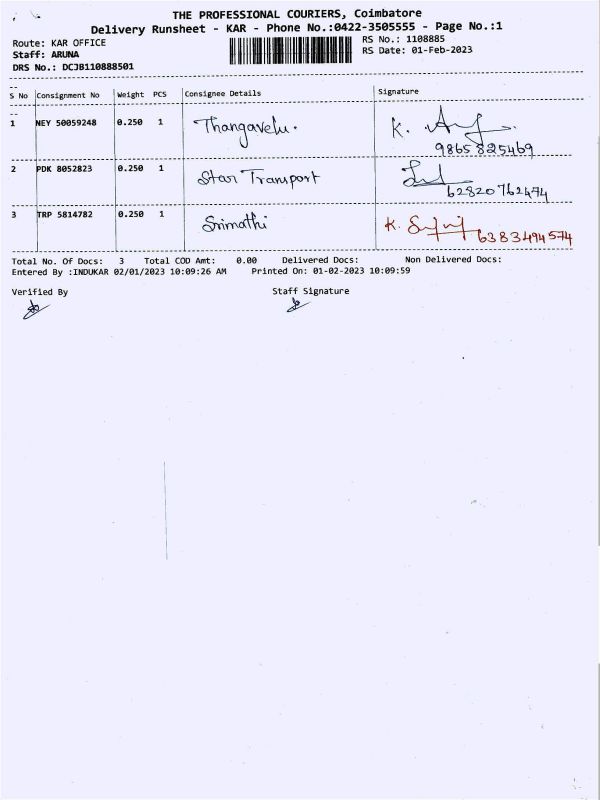 THE PROFESSIONAL COURIERS, Coimbatore
Delivery Runsheet - KAR - Phone No.:0422-3505555 - Page No.:1
Route: KAR OFFICE
RS No.: 1108885
Staff: ARUNA
RS Date: 01-Feb-2023
DRS No.: DCJB110888501
S No Consignment No Weight PCS Consignee Details Signature
1 NEY 50059248 0.250 1 Thangavelu. K.
9865825469
2 PDK 8052823 0.250 1 Star Transport
62820762474
3 TRP 5814782 0.250 1 Srimathi K.
6383494574
Total No. Of Docs: 3 Total COD Amt: 0.00 Delivered Docs: Non Delivered Docs:
Entered By :INDUKAR 02/01/2023 10:09:26 AM Printed On: 01-02-2023 10:09:59
Verified By Staff Signature